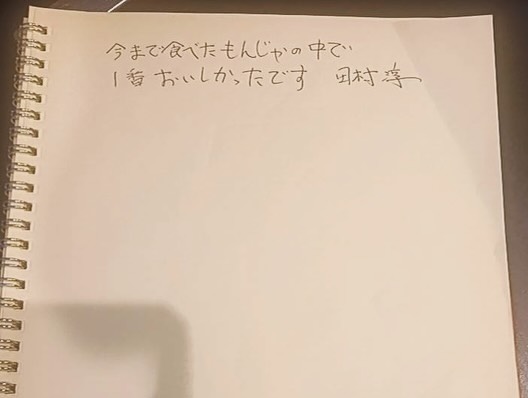 今まで食べたもんじゃの中で
1番おいしかったです 田村淳